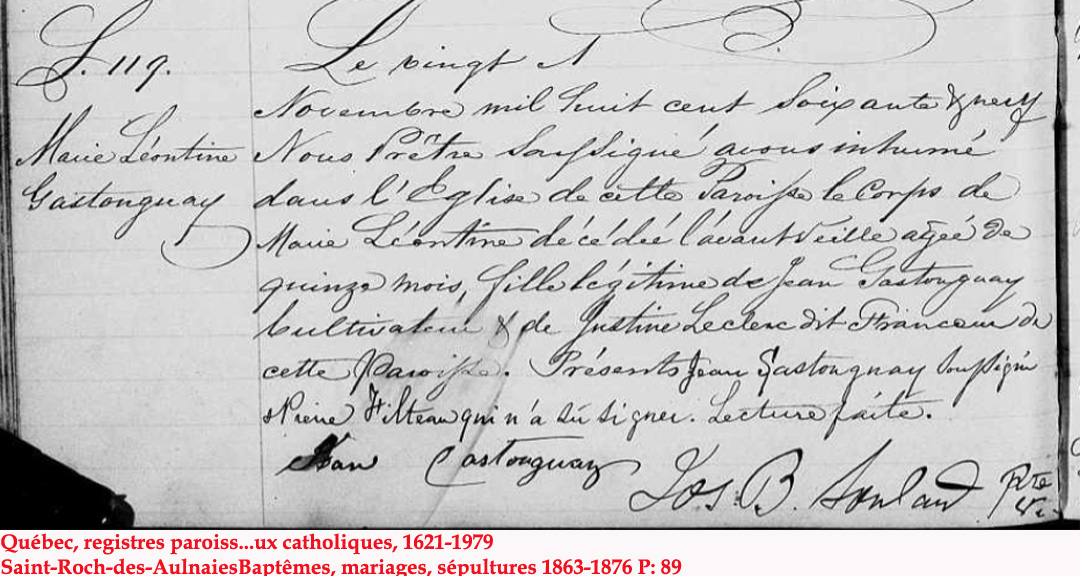 S. 119.
Marie Léontine
Gastonguay
Le vingt
Novembre mil huit cent Soixante & neuf
Nous Prêtre Soussigné avons inhumé
dans l'Eglise de cette Paroisse le Corps de
Marie Léontine décédée l'avant veille agée de
quinze mois, fille légitime de Jean Gastonguay
Cultivateur & de Justine Leclerc dit Francoeur de
cette Paroisse. Présents Jean Gastonguay soussigné
& Pierre Filteau qui n'a su signer. Lecture faite.
Jean Castonguay
Jos. B. Ptre
Québec, registres paroiss...ux catholiques, 1621-1979
Saint-Roch-des-AulnaiesBaptêmes, mariages, sépultures 1863-1876 P: 89